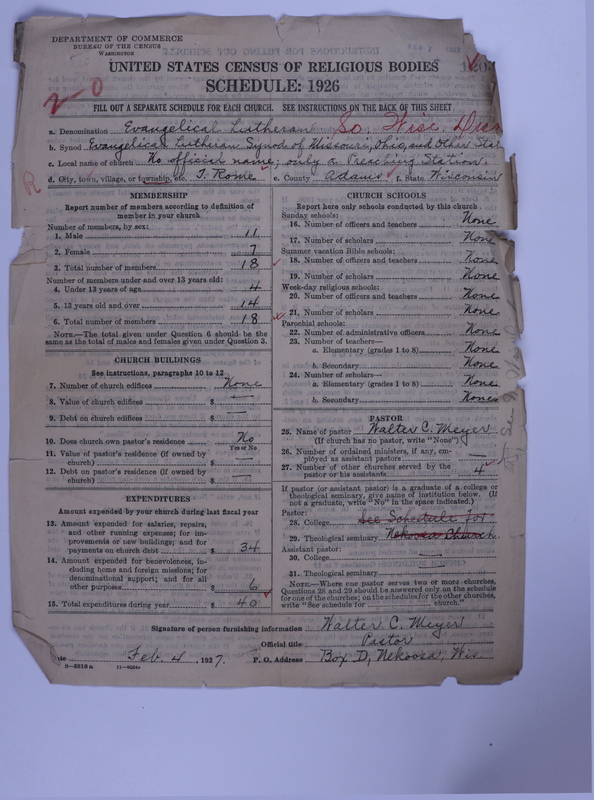 DEPARTMENT OF COMMERCE
BUREAU OF THE CENSUS
WASHINGTON
UNITED STATES CENSUS OF RELIGIOUS BODIES
SCHEDULE: 1926
2-0
FILL OUT A SEPARATE SCHEDULE FOR EACH CHURCH. SEE INSTRUCTIONS ON THE BACK OF THIS SHEET
a. Denomination Evangelical Lutheran So. Wisc.
b. Synod Evangelical Lutheran Synod of Missouri, Ohio, and Other
c. Local name of church No official name; only a Preaching Station.
d. City, town, village, or township, etc. T. Rome e. County Adams f. State Wisconsin
R
MEMBERSHIP
Report number of members according to definition of member in your church
Number of members, by sex:
1. Male 11
2. Female 7
3. Total number of members 18
Number of members under and over 13 years old:
4. Under 13 years of age 4
5. 13 years old and over 14
6. Total number of members 18
NOTE.—The total given under Question 6 should be the
same as the total of males and females given under Question 3.
CHURCH BUILDINGS
See instructions, paragraphs 10 to 12
7. Number of church edifices None
8. Value of church edifices $ —
9. Debt on church edifices $ —
10. Does church own pastor's residence No
Yes or No
11. Value of pastor's residence (if owned by
church) $ —
12. Debt on pastor's residence (if owned by
church) $ —
EXPENDITURES
Amount expended by your church during last fiscal year
13. Amount expended for salaries, repairs,
and other running expenses; for im-
provements or new buildings; and for
payments on church debt $ 34
14. Amount expended for benevolences, in-
cluding home and foreign missions; for
denominational support; and for all
other purposes $ 6
15. Total expenditures during year $ 40
CHURCH SCHOOLS
Report here only schools conducted by this church
Sunday schools:
16. Number of officers and teachers None
17. Number of scholars None
Summer vacation Bible schools:
18. Number of officers and teachers None
19. Number of scholars None
Week-day religious schools:
20. Number of officers and teachers None
21. Number of scholars None
Parochial schools:
22. Number of administrative officers None
23. Number of teachers—
a. Elementary (grades 1 to 8) None
b. Secondary None
24. Number of scholars—
a. Elementary (grades 1 to 8) None
b. Secondary None
PASTOR
25. Name of pastor Walter C. Meyer
(If church has no pastor, write "None")
26. Number of ordained ministers, if any, em-
ployed as assistant pastors —
27. Number of other churches served by the
pastor or his assistants 4
If pastor (or assistant pastor) is a graduate of a college or
theological seminary, give name of institution below. (If
not a graduate, write "No" in the space indicated.)
Pastor:
28. College See Schedule for
29. Theological seminary Nekoosa Church
Assistant pastor:
30. College —
31. Theological seminary
NOTE.—Where one pastor serves two or more churches,
Questions 28 and 29 should be answered only on the schedule
for one of the churches; on the schedules for the other churches,
write "See schedule for church."
Signature of person furnishing information Walter C. Meyer
Official title Pastor
Date Feb. 4, 1927. P. O. Address Box D, Nekoosa, Wis.